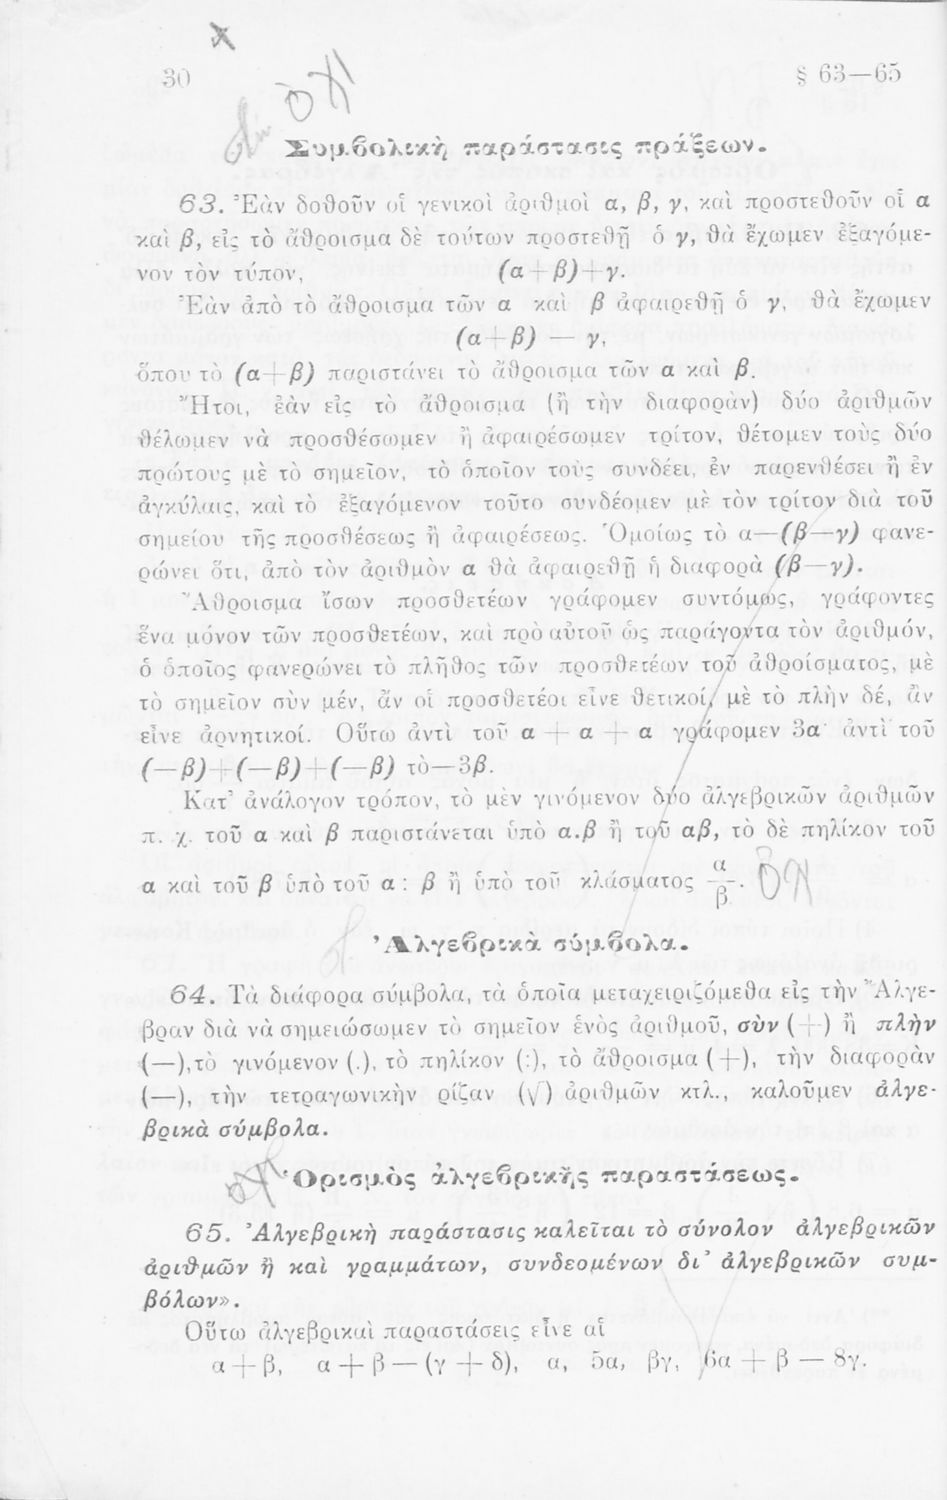 30
§ 63—65
Συμβολικὴ παράστασις πράξεων.
63. Ἐὰν δοθοῦν οἱ γενικοὶ ἀριθμοὶ α, β, γ, καὶ προστεθοῦν οἱ α
καὶ β, εἰς τὸ ἄθροισμα δὲ τούτων προστεθῇ ὁ γ, θὰ ἔχωμεν ἐξαγόμε-
νον τὸν τύπον, (α+β)+γ.
Ἐὰν ἀπὸ τὸ ἄθροισμα τῶν α καὶ β ἀφαιρεθῇ ὁ γ, θὰ ἔχωμεν
(α+β) — γ,
ὅπου τὸ (α+β) παριστάνει τὸ ἄθροισμα τῶν α καὶ β.
Ἤτοι, ἐὰν εἰς τὸ ἄθροισμα (ἢ τὴν διαφορὰν) δύο ἀριθμῶν
θέλωμεν νὰ προσθέσωμεν ἢ ἀφαιρέσωμεν τρίτον, θέτομεν τοὺς δύο
πρώτους μὲ τὸ σημεῖον, τὸ ὁποῖον τοὺς συνδέει, ἐν παρενθέσει ἢ ἐν
ἀγκύλαις, καὶ τὸ ἐξαγόμενον τοῦτο συνδέομεν μὲ τὸν τρίτον διὰ τοῦ
σημείου τῆς προσθέσεως ἢ ἀφαιρέσεως. Ὁμοίως τὸ α—(β—γ) φανε-
ρώνει ὅτι, ἀπὸ τὸν ἀριθμὸν α θὰ ἀφαιρεθῇ ἡ διαφορὰ (β—γ).
Ἄθροισμα ἴσων προσθετέων γράφομεν συντόμως, γράφοντες
ἕνα μόνον τῶν προσθετέων, καὶ πρὸ αὐτοῦ ὡς παράγοντα τὸν ἀριθμόν,
ὁ ὁποῖος φανερώνει τὸ πλῆθος τῶν προσθετέων τοῦ ἀθροίσματος, μὲ
τὸ σημεῖον σὺν μέν, ἄν οἱ προσθετέοι εἶνε θετικοί, μὲ τὸ πλὴν δέ, ἂν
εἶνε ἀρνητικοί. Οὕτω ἀντὶ τοῦ α + α + α γράφομεν 3α ἀντὶ τοῦ
(—β)+(—β)+(—β) τὸ—3β.
Κατ’ ἀνάλογον τρόπον, τὸ μὲν γινόμενον δύο ἀλγεβρικῶν ἀριθμῶν
π. χ. τοῦ α καὶ β παριστάνεται ὑπὸ α.β ἢ τοῦ αβ, τὸ δὲ πηλίκον τοῦ
α καὶ τοῦ β ὑπὸ τοῦ α : β ἢ ὑπὸ τοῦ κλάσματος α/β.
Ἀλγεβρικὰ σύμβολα.
64. Τὰ διάφορα σύμβολα, τὰ ὁποῖα μεταχειριζόμεθα εἰς τὴν Ἄλγε-
βραν διὰ νὰ σημειώσωμεν τὸ σημεῖον ἑνὸς ἀριθμοῦ, σὺν (+) ἢ πλὴν
(—),τὸ γινόμενον (.), τὸ πηλίκον (:), τὸ ἄθροισμα (+), τὴν διαφορὰν
(—), τὴν τετραγωνικὴν ρίζαν (√) ἀριθμῶν κτλ., καλοῦμεν ἀλγε-
βρικὰ σύμβολα.
Ὁρισμὸς ἀλγεβρικῆς παραστάσεως.
65. Ἀλγεβρικὴ παράστασις καλεῖται τὸ σύνολον ἀλγεβρικῶν
ἀριθμῶν ἢ καὶ γραμμάτων, συνδεομένων δι’ ἀλγεβρικῶν συμ-
βόλων».
Οὕτω ἀλγεβρικαὶ παραστάσεις εἶνε αἱ
α + β, α + β — (γ + δ), α, 5α, βγ, 6α + β — 8γ.